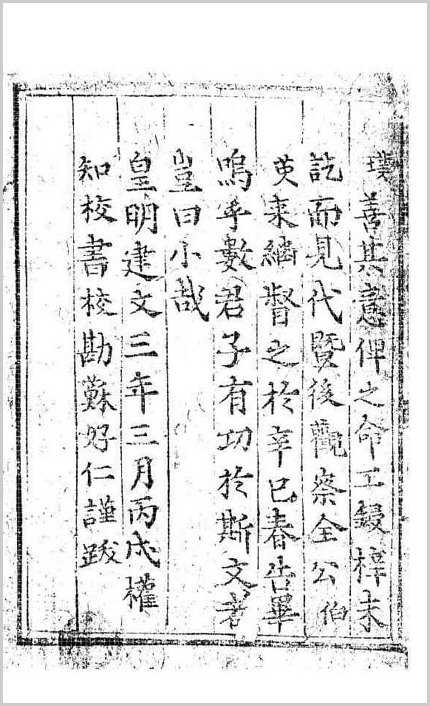 璞善其意俾之命工鋟梓未
訖而見代暨後觀察全公伯
英來繼督之於辛巳春告畢
嗚乎數君子有功於斯文者
豈曰小哉
皇明建文三年三月丙戌權
知校書校勘蘇好仁謹跋